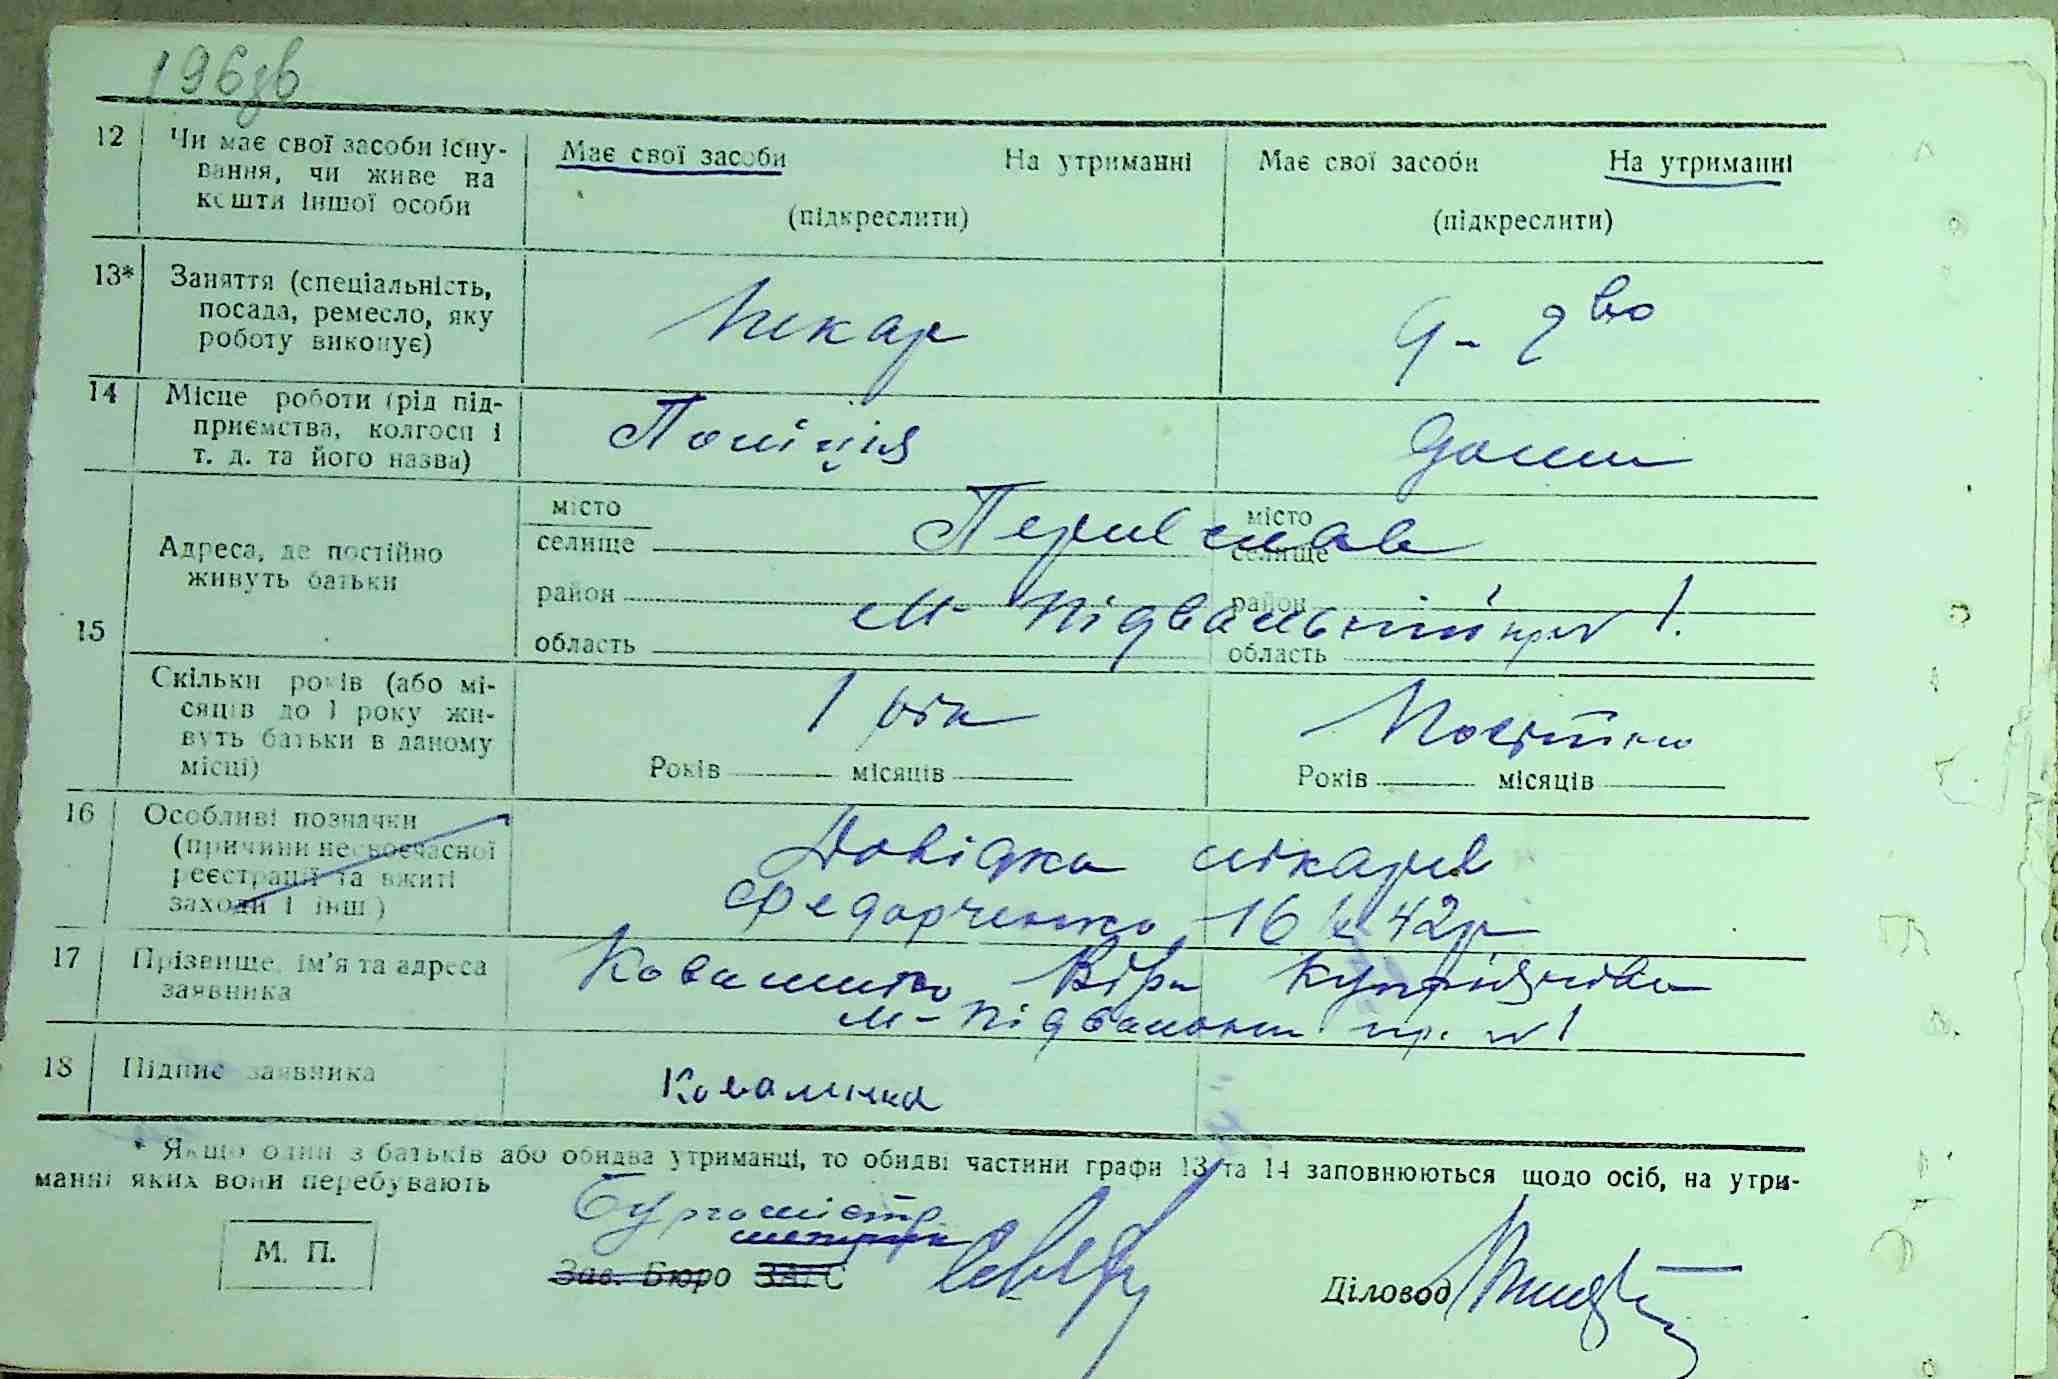 196зв
12 Чи має свої засоби існу-
вання, чи живе на
кошти іншої особи
Має свої засоби На утриманні
(підкреслити)
Має свої засоби На утриманні
(підкреслити)
13* Заняття (спеціальність,
посада, ремесло, яку
роботу виконує)
Пекар
д-гво
14 Місце роботи (рід під-
приємства, колгосп і
т. д. та його назва)
Поліція
дома
15 Адреса, де постійно
живуть батьки
місто
селище
район
область
місто
селище
район
область
Переяслав
М-Підвальний пров 1.
Скільки років (або мі-
сяців до 1 року жи-
вуть батьки в даному
місці)
1 рік
Років місяців
Постійно
Років місяців
16 Особливі позначки
(причини несвоєчасної
реєстрації та вжиті
заходи і інш)
Довідка лікаря
Федорченко 16 42р
17 Прізвище, ім'я та адреса
заявника
Коваленко Віра Купріянівна
М-Підвальни пр. №1
18 Підпис заявника
Коваленко
* Якщо один з батьків або обидва утриманці, то обидві частини графи 13 та 14 заповнюються щодо осіб, на утри-
манні яких вони перебувають
Бургомістр
М. П.
Зав. Бюро ЗАГС
Діловод